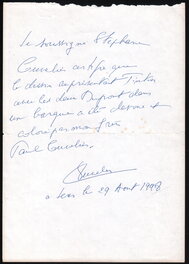 Je soussigné Stéphane
Cuvelier certifie que
le dessin représentant Tintin
avec les deux Dupont dans
une barque a été dessiné et
colorié par mon frère
Paul Cuvelier.
Cuvelier
à Lens le 29 Août 1998